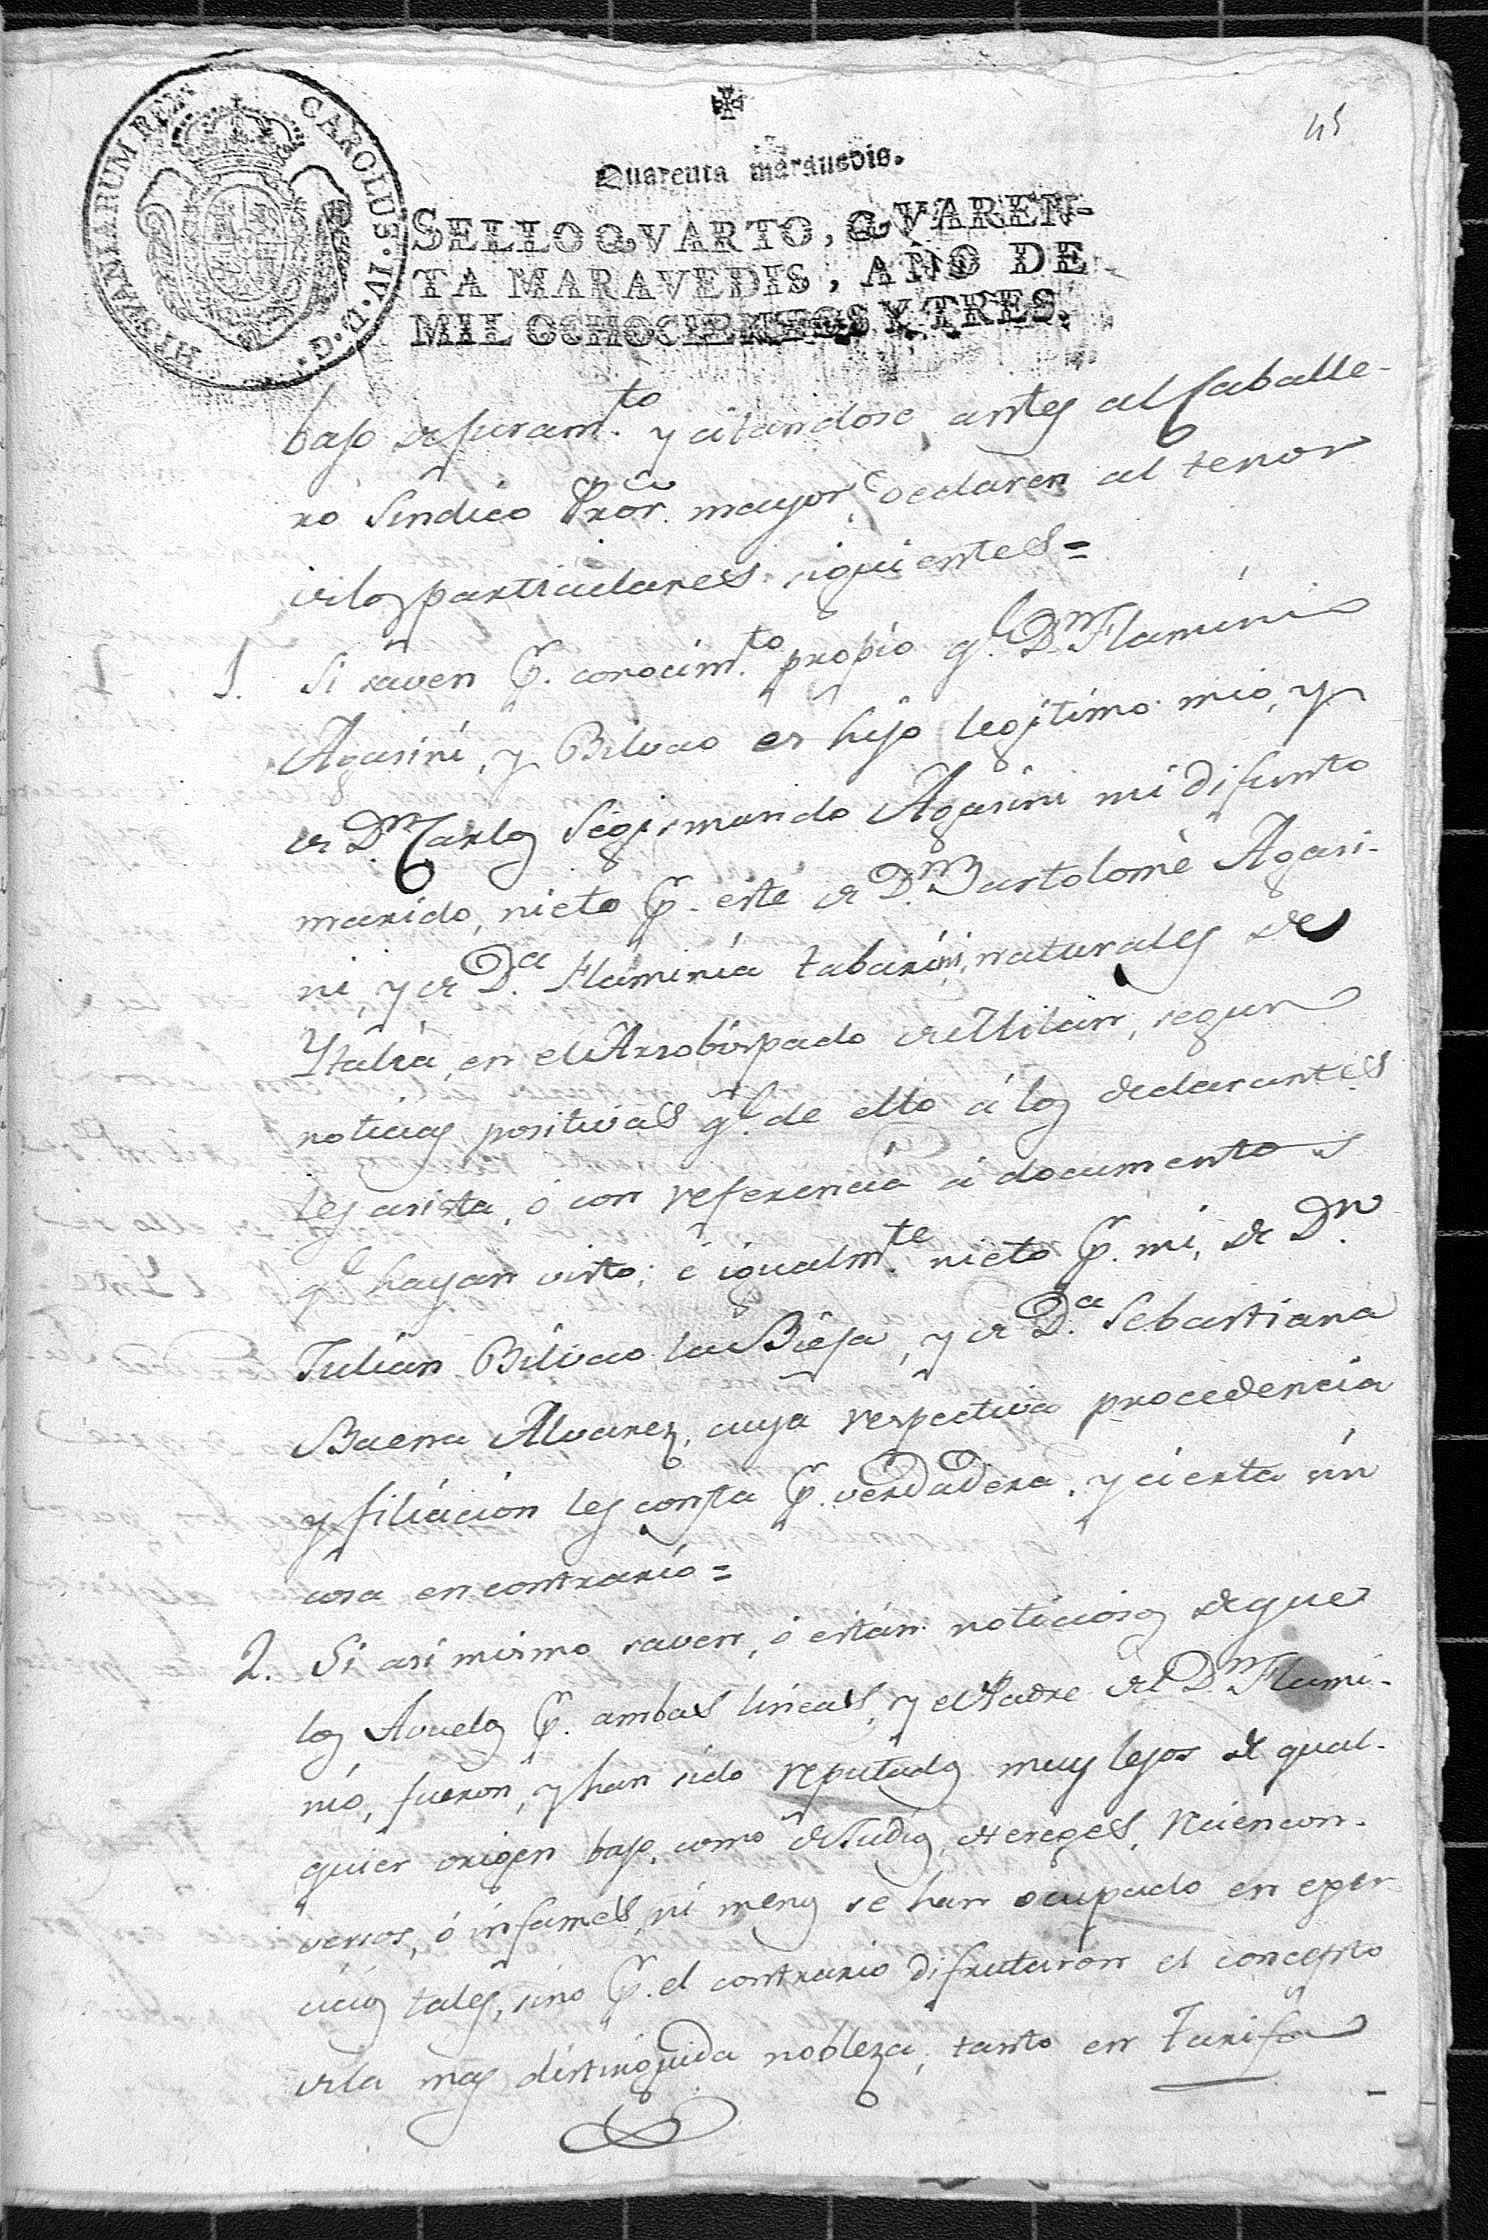 45
HISPANIARUM REX
CAROLUS·IV·D·G·
Quarenta maravedis.
SELLO QVARTO, QVAREN-
TA MARAVEDIS, AÑO DE
MIL OCHOCIENTOS Y TRES.
bajo de juram.to y citandose antes al Caballe-
ro Sindico Pror. mayor, declaren al tenor
de los particulares siguientes=
1. Si saven p. conocim.to propio q.e D.n Flaminio
Agasini, y Bilvao es hijo legitimo mio, y
de D.n Carlos Segismundo Agasini mi difunto
marido, nieto p. este de D.n Bartolomè Agasi-
ni, y de D.a Flaminia tabarini, naturales de
Ytalia, en el Arzobispado de Milan, segun
noticias positivas q.e de ello á los declarantes
les asista, ó con referencia á documentos
q.e hayan visto; é igualm.te nieto p. mi, de D.n
Julian Bilvao la Biesa, y de D.a Sebastiana
Baena Alvarez, cuya respectiva procedencia
y filiacion les consta p. verdadera, y cierta sin
cosa en contrario=
2. Si asi mismo saven, ó están noticiosos de que
los Avuelos p. ambas lineas, y el Padre del D.n Flami-
nio, fueron, y han sido reputados muy lejos de qual-
quier origen bajo, como de Judios, Hereges, Reciencon-
versos, ó infames, ni menos se han ocupado en exer-
cicios tales, sino p. el contrario disfrutaron el concepto
de la mas distinguida nobleza, tanto en Tarifa